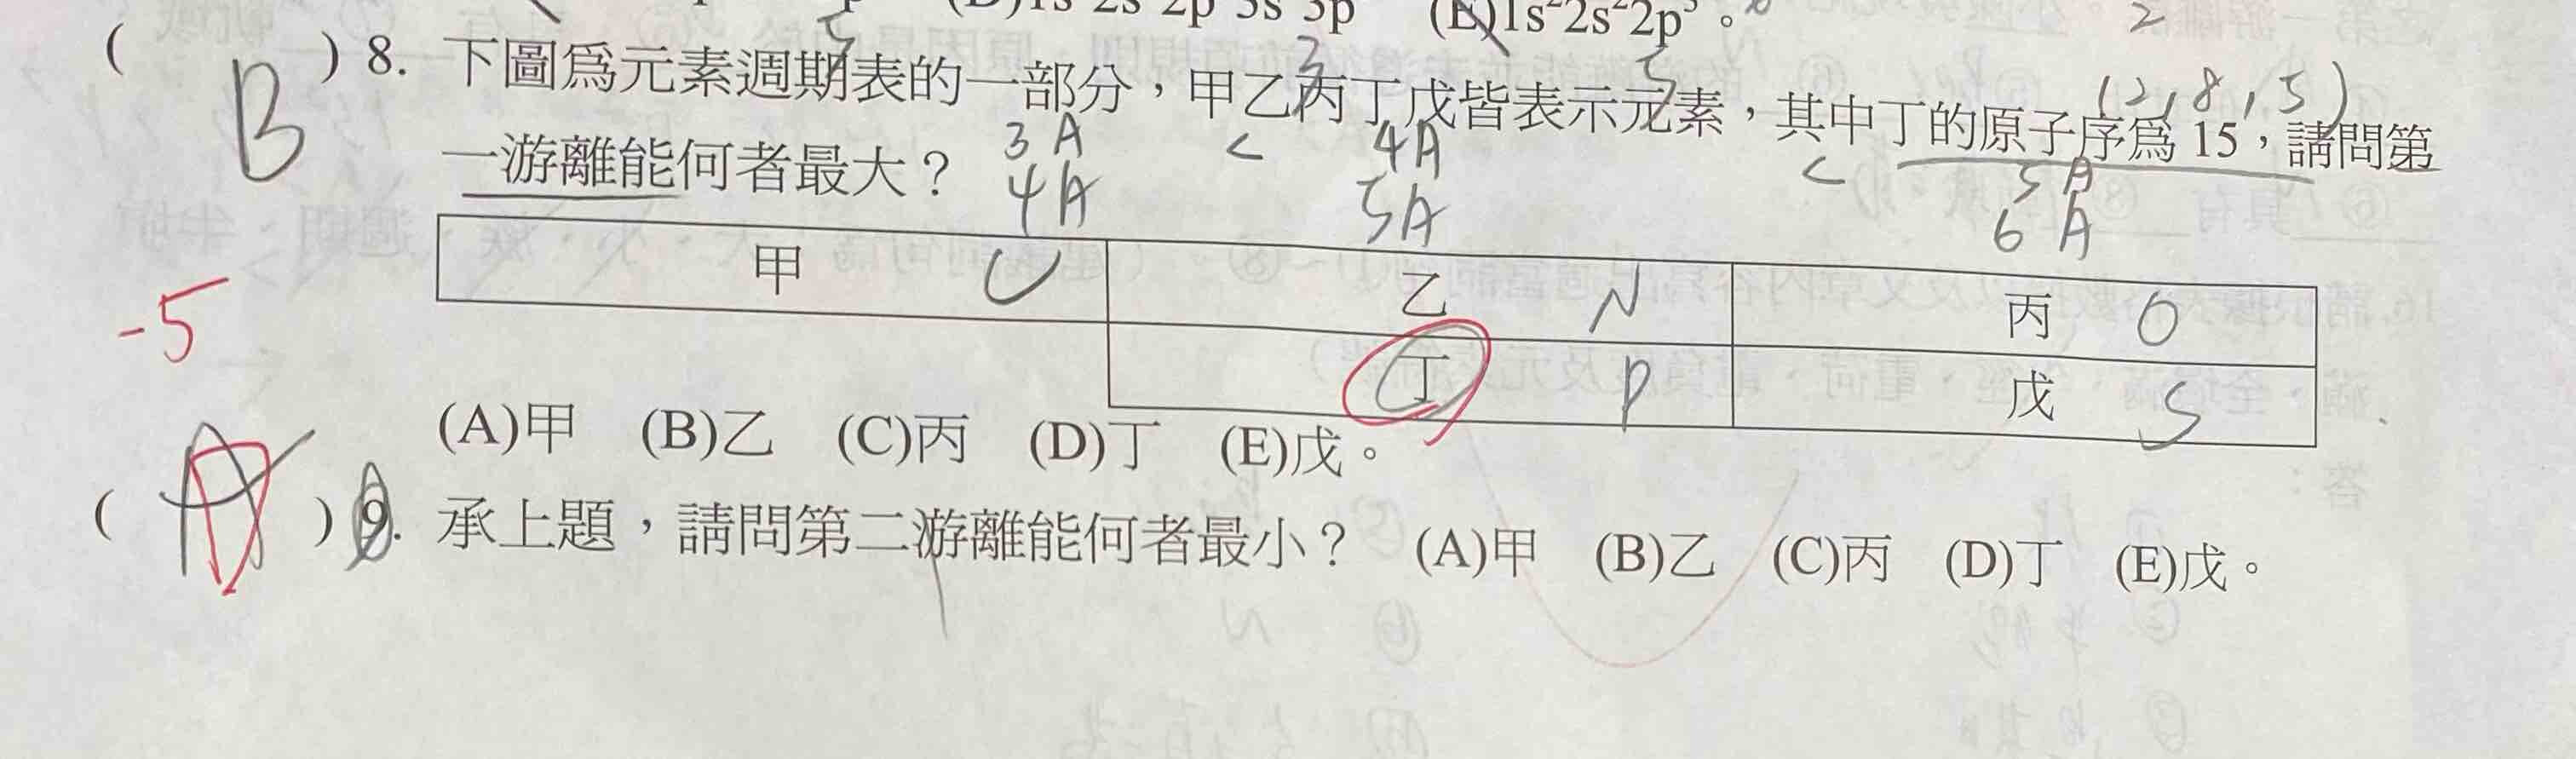 (D)1s²2s²2p⁶3s²3p (E)1s²2s²2p³。
( B ) 8. 下圖為元素週期表的一部分，甲乙丙丁戊皆表示元素，其中丁的原子序為 15，請問第
一游離能何者最大？
(2,8,5)
3A < 4A < 5A
4A 5A 6A
甲 C 乙 N 丙 O
丁 P 戊 S
-5
(A)甲 (B)乙 (C)丙 (D)丁 (E)戊。
( A ) 9. 承上題，請問第二游離能何者最小？ (A)甲 (B)乙 (C)丙 (D)丁 (E)戊。